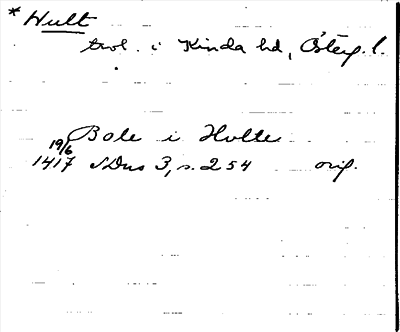 * Hult
trol. i Kinda hd, Österg. l.
Bole i Hulte
19/6
1417 SDns 3, s. 254 orig.